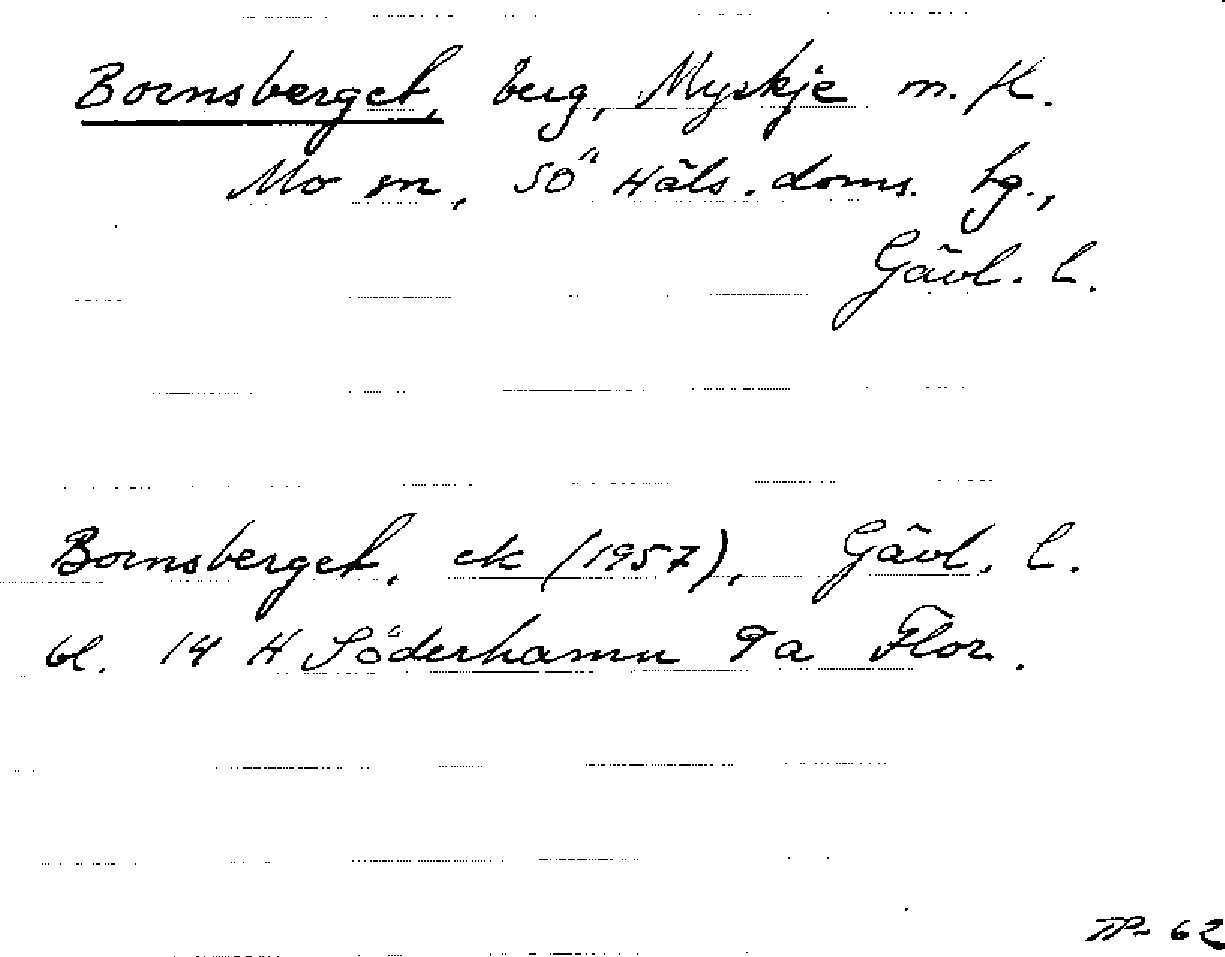 Bornsberget, berg, Myskje m. fl.
Mo sn, Sö Häls. doms. hg.,
Gävl. l.
Bornsberget, ek (1957), Gävl. l.
bl. 14 H Söderhamn 9 a Flor.
TP- 62